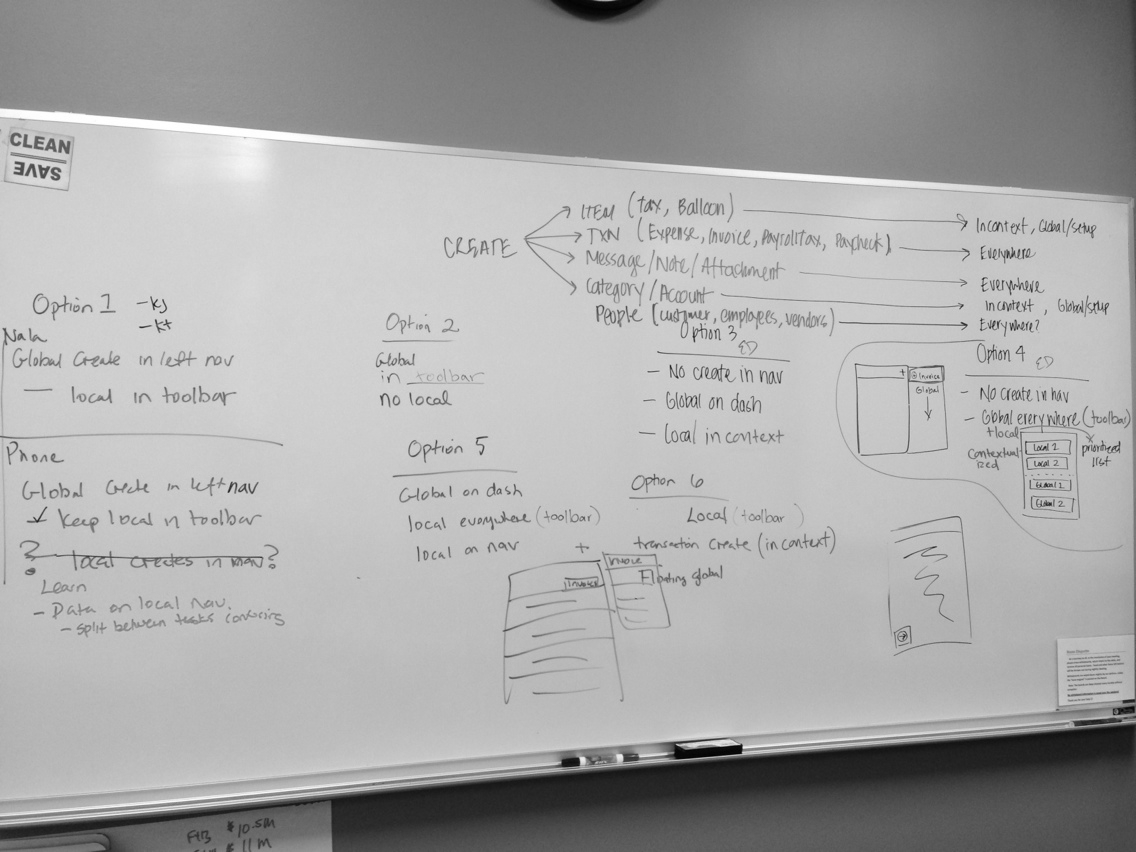 CLEAN
SAVE
CREATE
ITEM (tax, Balloon)
Incontext, Global/setup
TXN (Expense, Invoice, Payroll tax, Paycheck)
Everywhere
Message/Note/Attachment
Everywhere
Category/Account
incontext, Global/setup
People [customer, employees, vendors)
Everywhere?
Option 1
- KJ
- KT
Nala
Global Create in left nav
— local in toolbar
Phone
Global Create in left nav
Keep local in toolbar
? local creates in nav ?
Learn
- Data on local nav.
- split between tasks confusing
Option 2
Global
in toolbar
no local
Option 3
ED
- No create in nav
- Global on dash
- Local in context
Option 4
ED
- No create in nav
- Global everywhere (toolbar)
+ local
Contextualized
prioritized
list
Local 1
Local 2
Global 1
Global 2
+
Invoice
Global
Option 5
Global on dash
local everywhere (toolbar)
local on nav
Option 6
Local (toolbar)
+ transaction create (in context)
Floating global
Invoice
Invoice
$10.5M
$11M